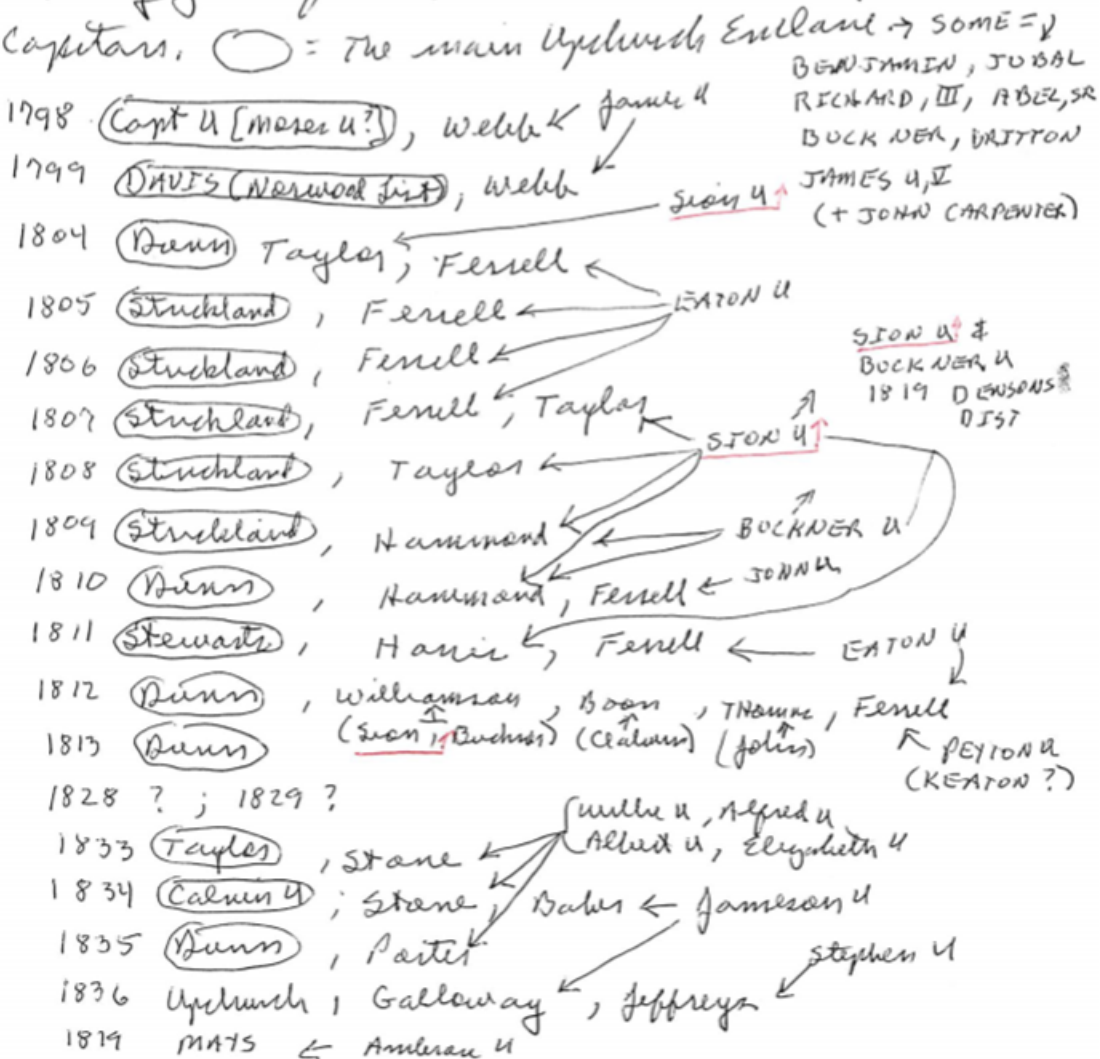 Capitans. = The main Upchurch Enclave → SOME =
BENJAMIN, JUBAL
RICHARD, III, ABEL, SR
BUCKNER, BRITTON
JAMES U, V
(+ JOHN CARPENTER)
1798 Capt U [Moses U?], Webb ← James U
1799 DAVIS (Norwood List), Webb
Sion U
1804 Dunn Taylor, Ferrell
EATON U
1805 Strickland, Ferrell
1806 Strickland, Ferrell
SION U &
BUCKNER U
1819 DENSONS
DIST
1807 Strickland, Ferrell, Taylor
SION U
1808 Strickland, Taylor
1809 Strickland, Hammond
BUCKNER U
1810 Dunn, Hammond, Ferrell ← JOHN U
1811 Stewarts, Harris, Ferrell ← EATON U
1812 Dunn, Williamson, Boon, Thomas, Ferrell
1813 Dunn (Sion, Buckner) (Calvin) (John)
PEYTON U
(KEATON ?)
1828 ? ; 1829 ?
Willie U, Alfred U
Albert U, Elizabeth U
1833 Taylor, Stone
1834 Calvin U ; Stone, Baker ← Jameson U
1835 Dunn, Porter
Stephen U
1836 Upchurch, Galloway, Jeffreys
1819 MAYS ← Ambrose U